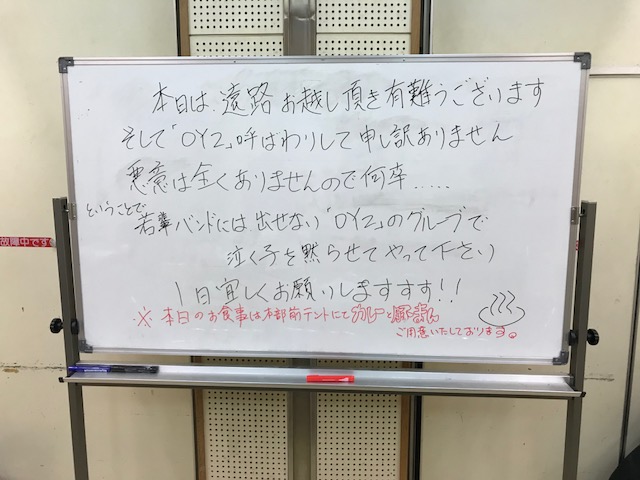 本日は 遠路 お越し頂き有難うございます
そして「OYZ」呼ばわりして申し訳ありません
悪意は全くありませんので何卒.....
ということで
若輩バンドには出せない「OYZ」のグルーブで
泣く子を黙らせてやって下さい
1日宜しくお願いしますすす!!
※ 本日のお食事は本部前テントにてカレーと豚まん
ご用意いたしております。
故障中です